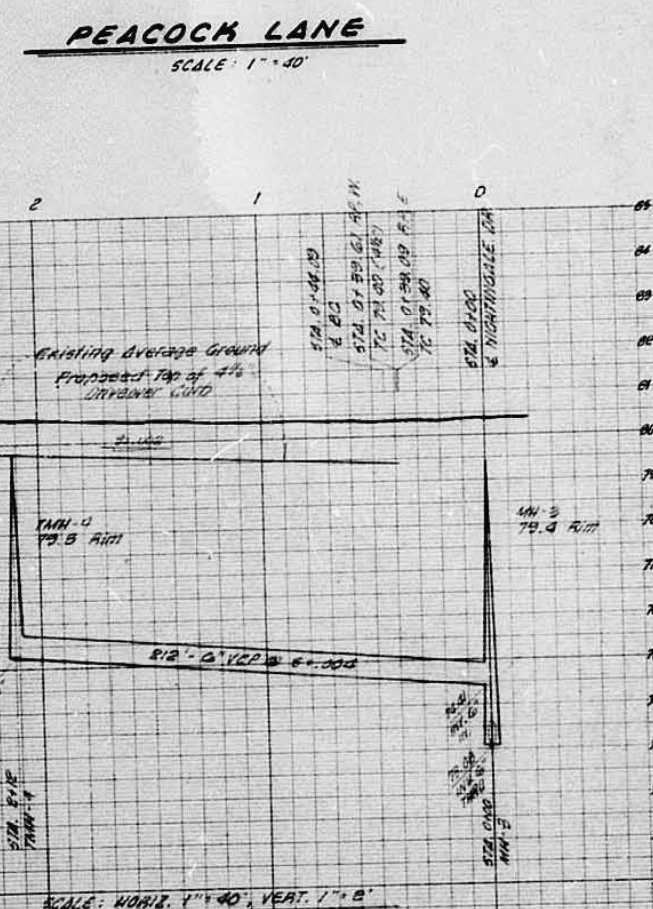 PEACOCK LANE
SCALE: 1" = 40'
2
1
0
85
84
83
82
81
80
STA. 0+44.09
℄ BC
STA. 0+39.61 R.P. W.
STA. 0+39.09 R.P. E
TC 79.40
STA. 0+00
℄ NIGHTINGALE DR
Existing Average Ground
Proposed Top of 4½"
Driveover Curb
TMH-4
79.8 Rim
MH-3
79.4 Rim
212' - 6" VCP @ S=.004
TMH-4
STA. 0+00
MH-3
SCALE: HORIZ. 1" = 40', VERT. 1" = 2'